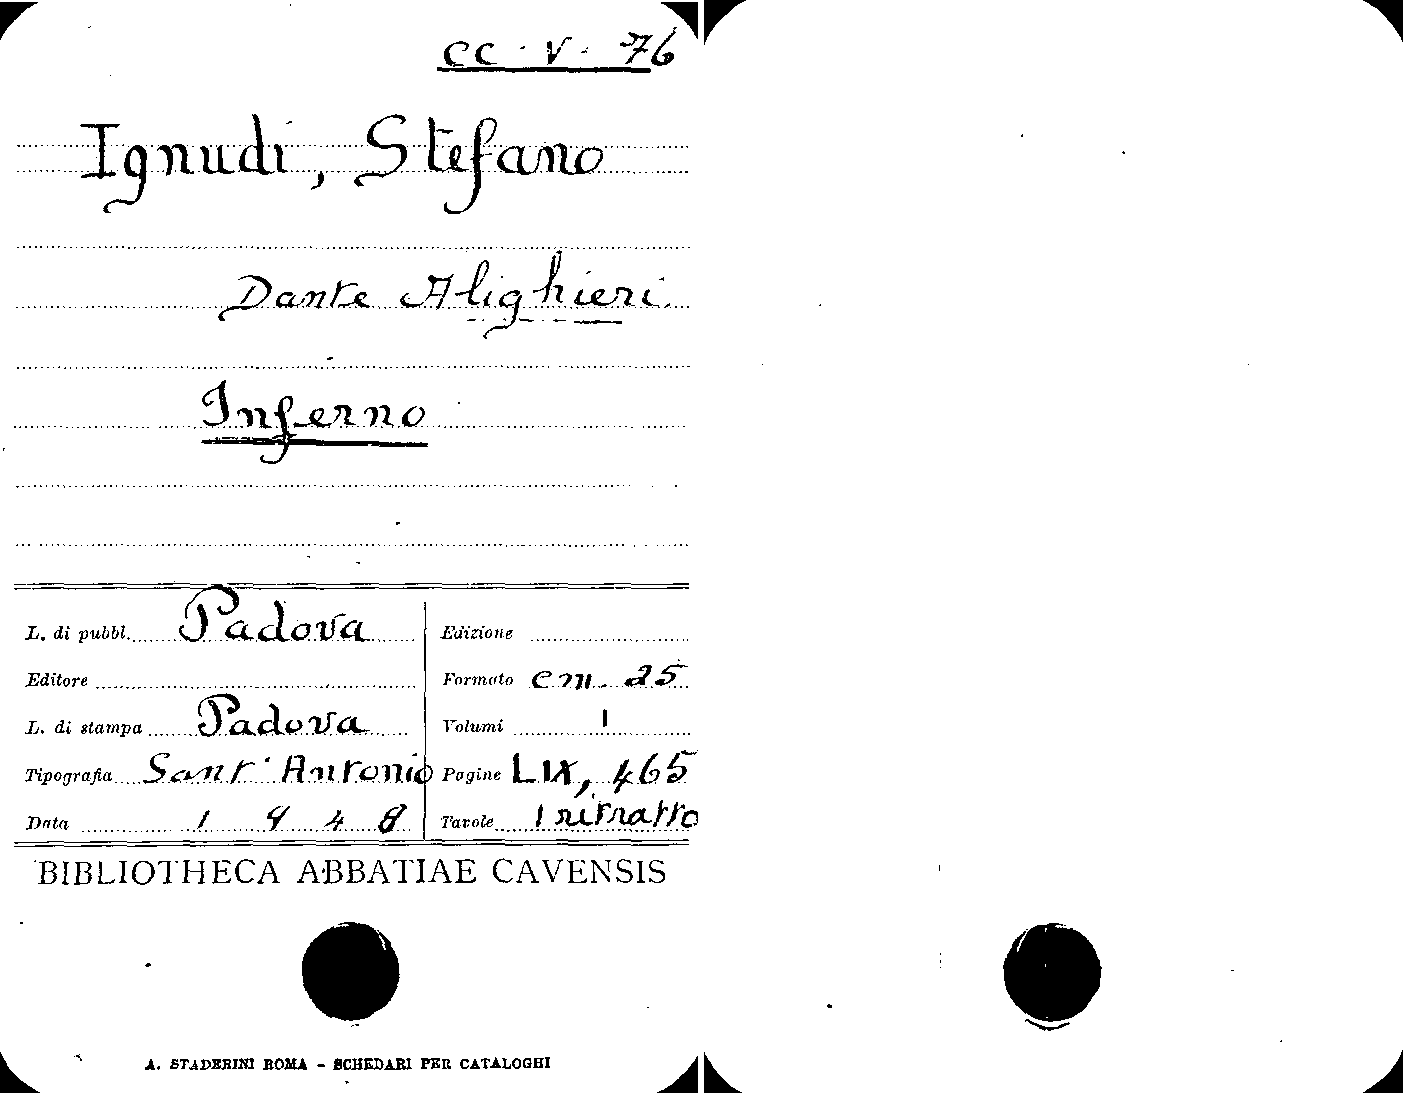 CC · V · 76
Ignudi, Stefano
Dante Alighieri
Inferno
L. di pubbl. Padova
Editore
L. di stampa Padova
Tipografia Sant'Antonio
Data 1948
Edizione
Formato cm. 25
Volumi 1
Pagine LIX, 465
Tavole 1 ritratto
BIBLIOTHECA ABBATIAE CAVENSIS
A. STADERINI ROMA - SCHEDARI PER CATALOGHI